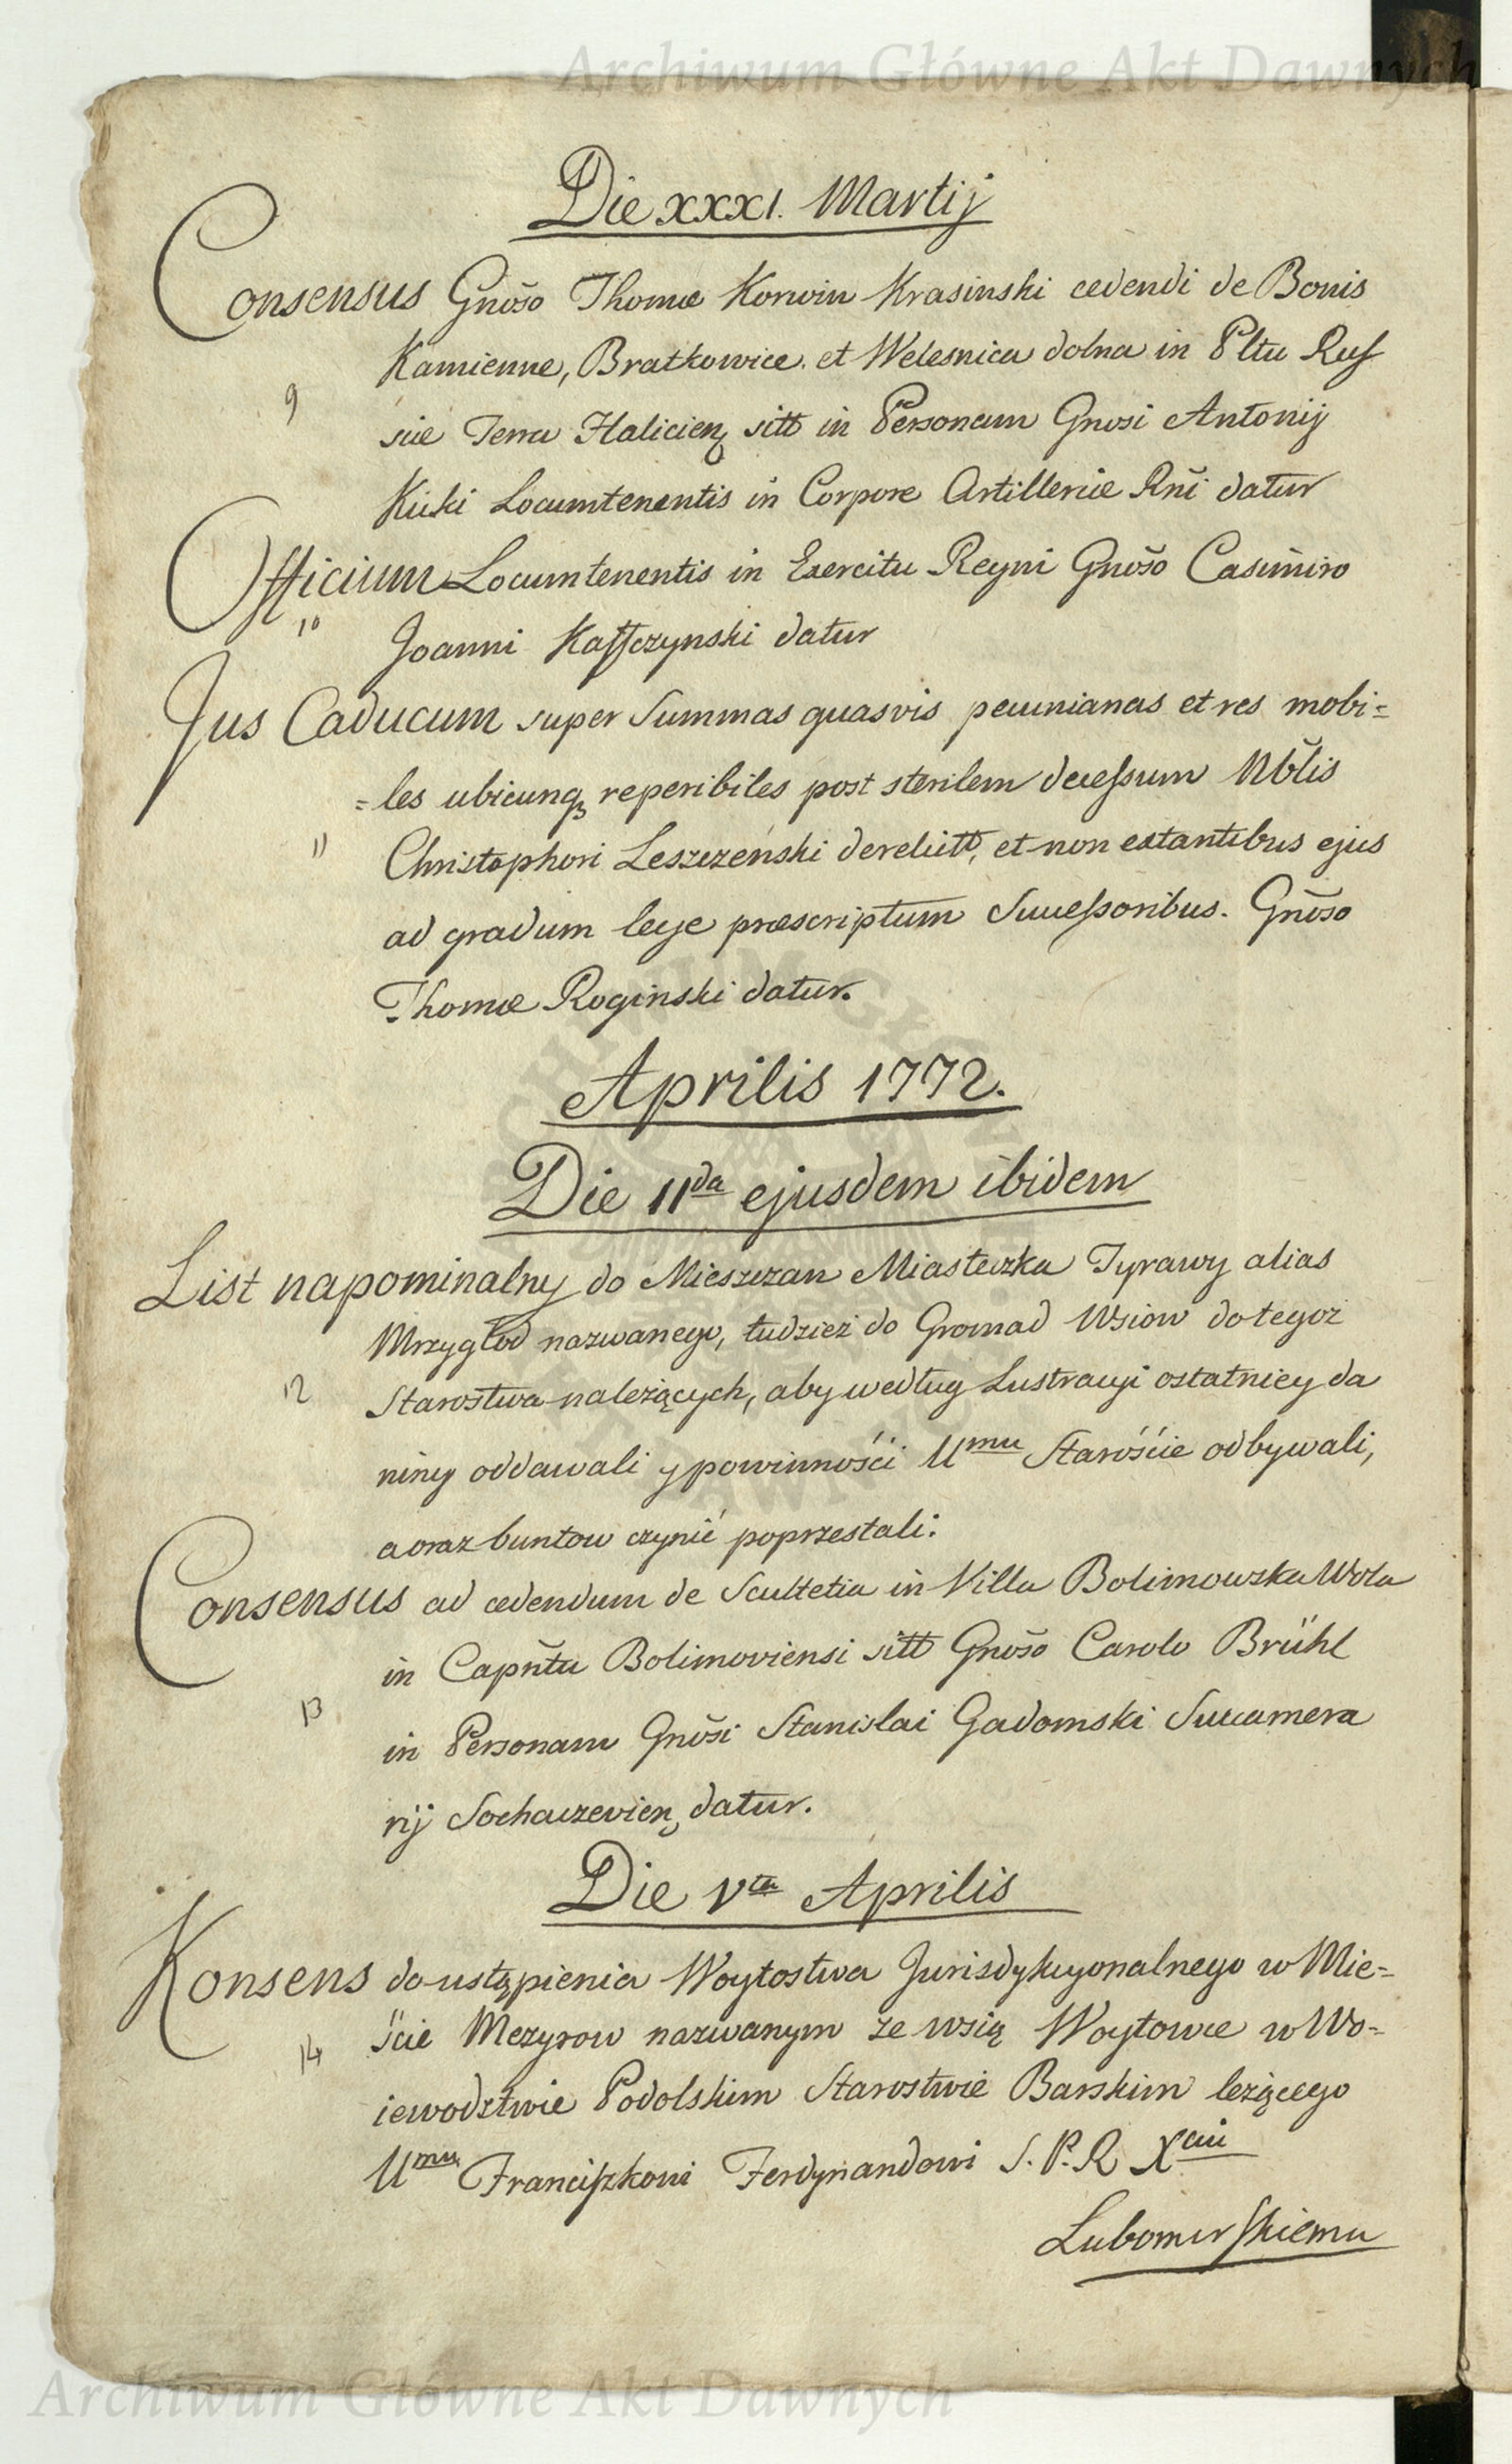 Archiwum Główne Akt Dawnych
Die XXXI. Martij
Consensus Gnoso Thomæ Korwin Krasinski cedendi de Bonis
Kamienne, Bratkowice et Welesnica dolna in Pltu Rus
9
siæ Terra Haliciens sitt in Personam Gnosi Antonij
Kicki Locumtenentis in Corpore Artilleriæ Rni datur
Officium Locumtenentis in Exercitu Regni Gnoso Casimiro
10
Joanni Kaffczynski datur
Jus Caducum super Summas quasvis pecunianas et res mobi=
=les ubicunq reperibiles post sterilem decessum Nblis
11
Christophori Leszczeński derelictt, et non extantibus ejus
ad gradum lege præscriptum Successoribus. Gnoso
Thomæ Roginski datur.
Aprilis 1772.
Die 11da ejusdem ibidem
List napominalny do Mieszczan Miasteczka Tyrawy alias
Mrzygłod nazwanego, tudziez do Gromad Wsiow do tegoż
12
Starostwa należących, aby według Lustracyi ostatniey da
niny oddawali y powinnośći Umu Starośćie odbywali,
a oraz buntow czynić poprzestali.
Consensus ad cedendum de Scultetia in Villa Bolimowska Wola
in Capntu Bolimoviensi sitt Gnoso Carolo Brühl
13
in Personam Gnosi Stanislai Gadomski Succamera
rij Sochaczevien datur.
Die Vta Aprilis
Konsens do ustąpienia Woytostwa Jurisdykcyonalnego w Mie=
14
ście Mezyrow nazwanym ze wsią Woytowce w Wo=
iewodztwie Podolskim Starostwie Barskim leżącego
Umu Franciszkowi Ferdynandowi S. P. R Xciu
Lubomirskiemu
Archiwum Główne Akt Dawnych